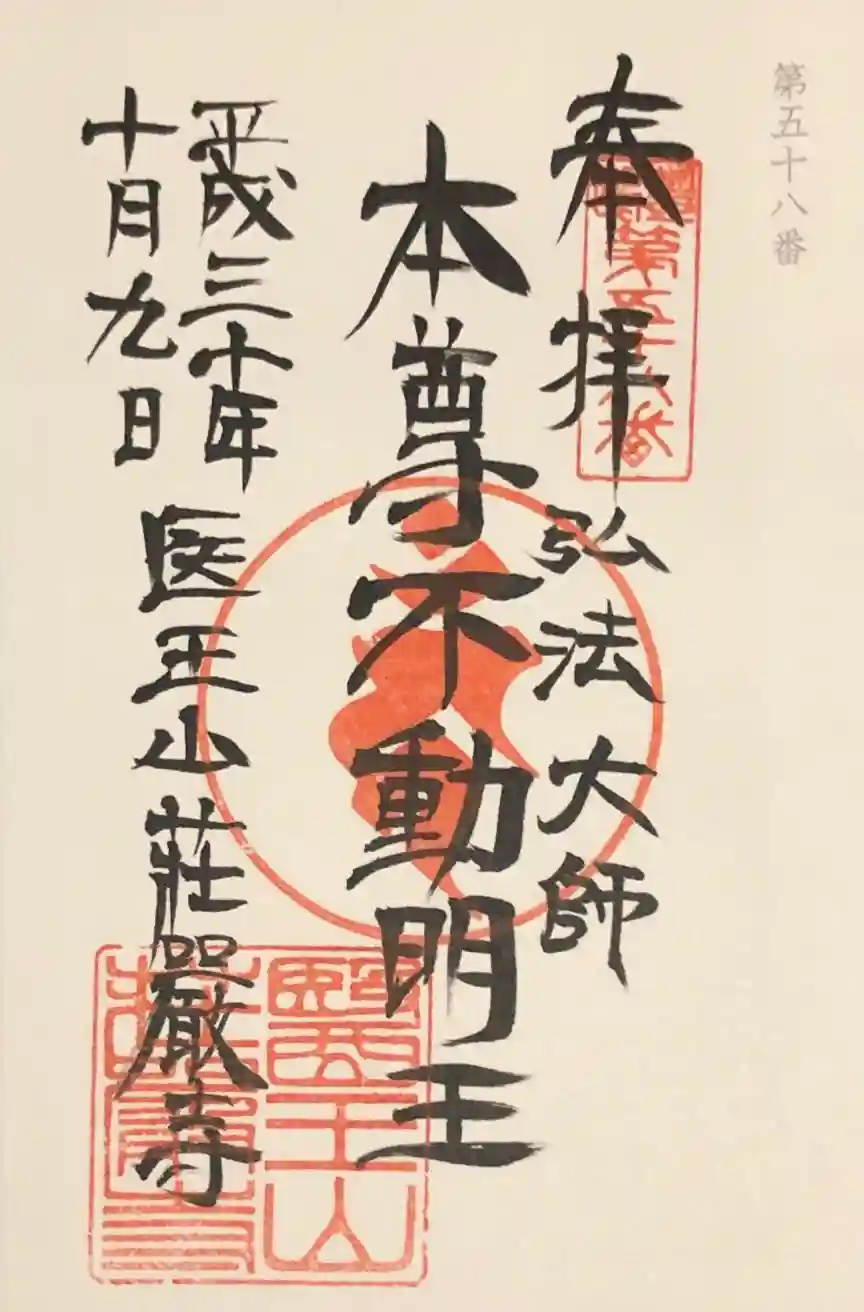 第五十八番
奉拝 弘法大師
本尊不動明王
平成三十年
十月九日
医王山 荘嚴寺
第五十八番
醫王山